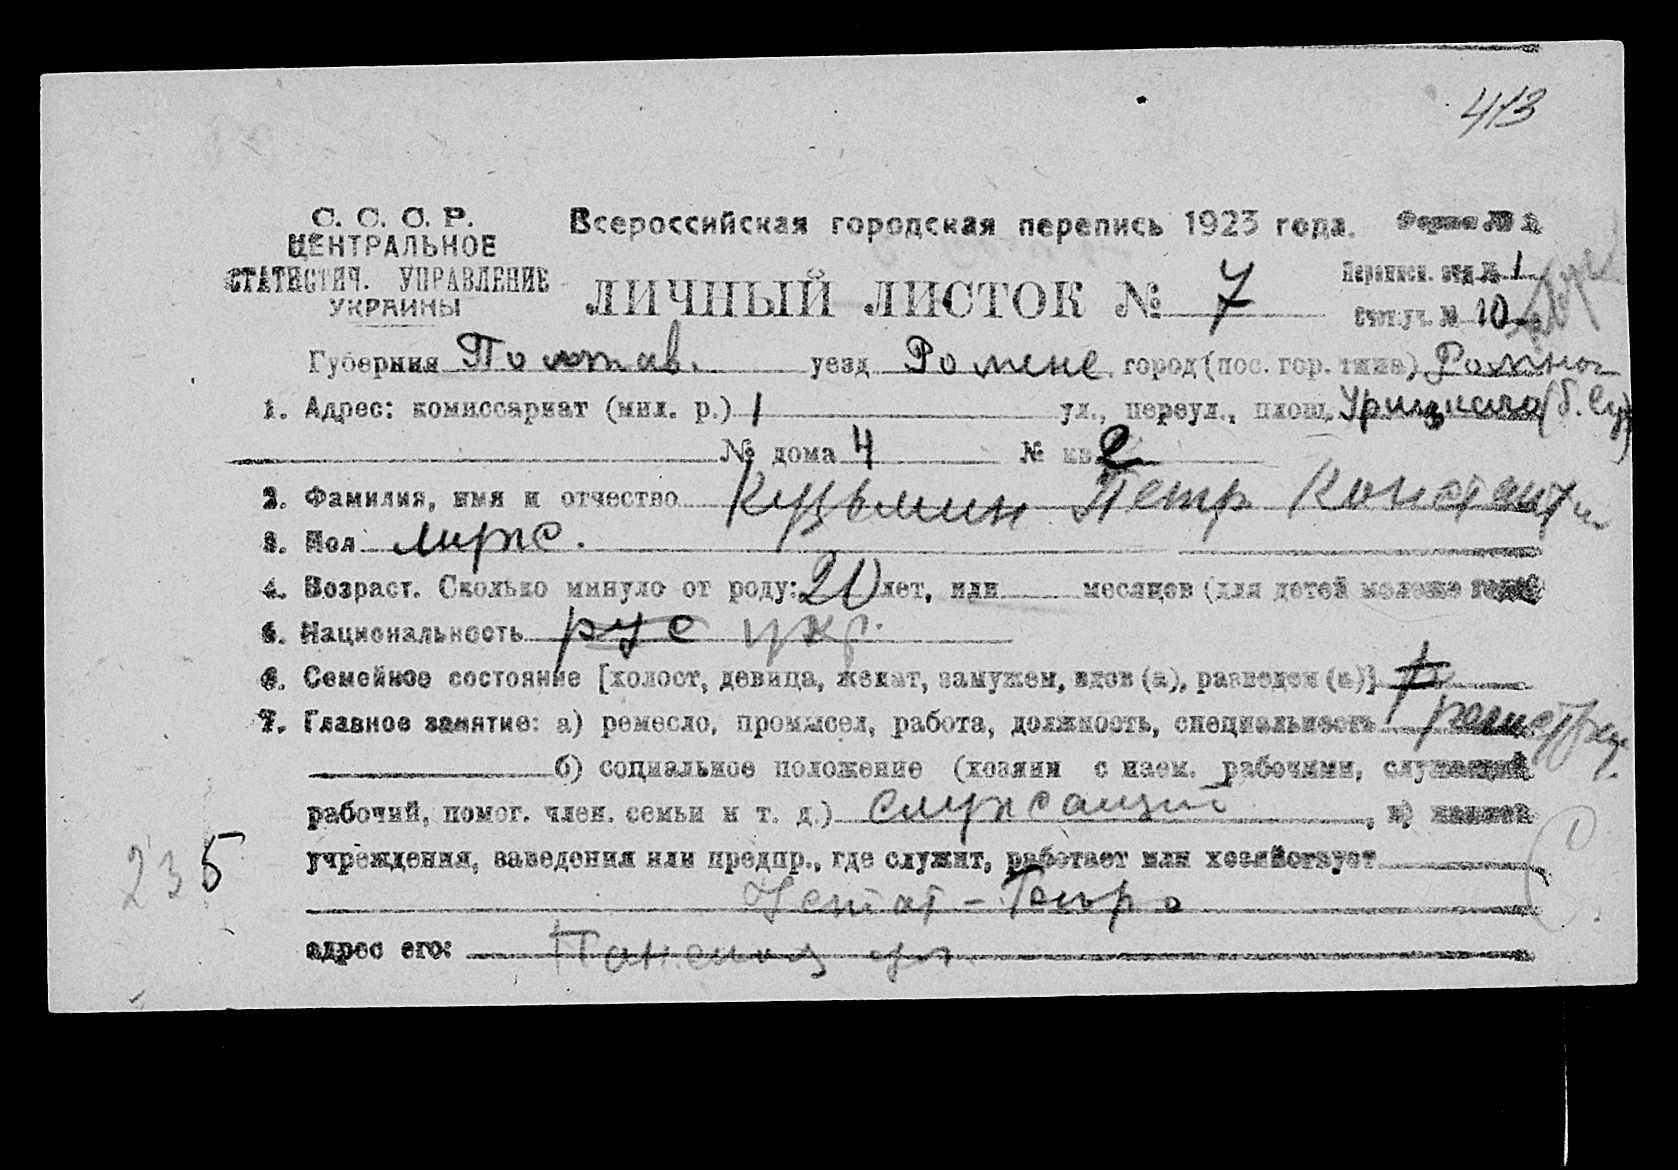 413
С. С. С. Р.
ЦЕНТРАЛЬНОЕ
СТАТИСТИЧ. УПРАВЛЕНИЕ
УКРАИНЫ
Всероссийская городская перепись 1923 года. Форма №
Переписн. отд № 1
ЛИЧНЫЙ ЛИСТОК № 7
Счетн. уч. № 10
Губерния Полтав. уезд Ромене город (пос. гор. типа) Ромны
1. Адрес: комиссариат (мил. р.) 1 ул., переул., площ. Урицкого (б.
№ дома 4 № кв 2
2. Фамилия, имя и отчество Кузьмин Петр Константин
3. Пол мужс.
4. Возраст. Сколько минуло от роду: 20 лет, или месяцев (для детей моложе года)
5. Национальность рус укр.
6. Семейное состояние [холост, девица, женат, замужем, вдов (а), разведен (а)]
7. Главное занятие: а) ремесло, промысел, работа, должность, специальность
б) социальное положение (хозяин с наем. рабочими, служащий
рабочий, помог. член. семьи и т. д.) служсащий, в)
учреждения, заведения или предпр., где служит, работает или хозяйствует
235
адрес его: